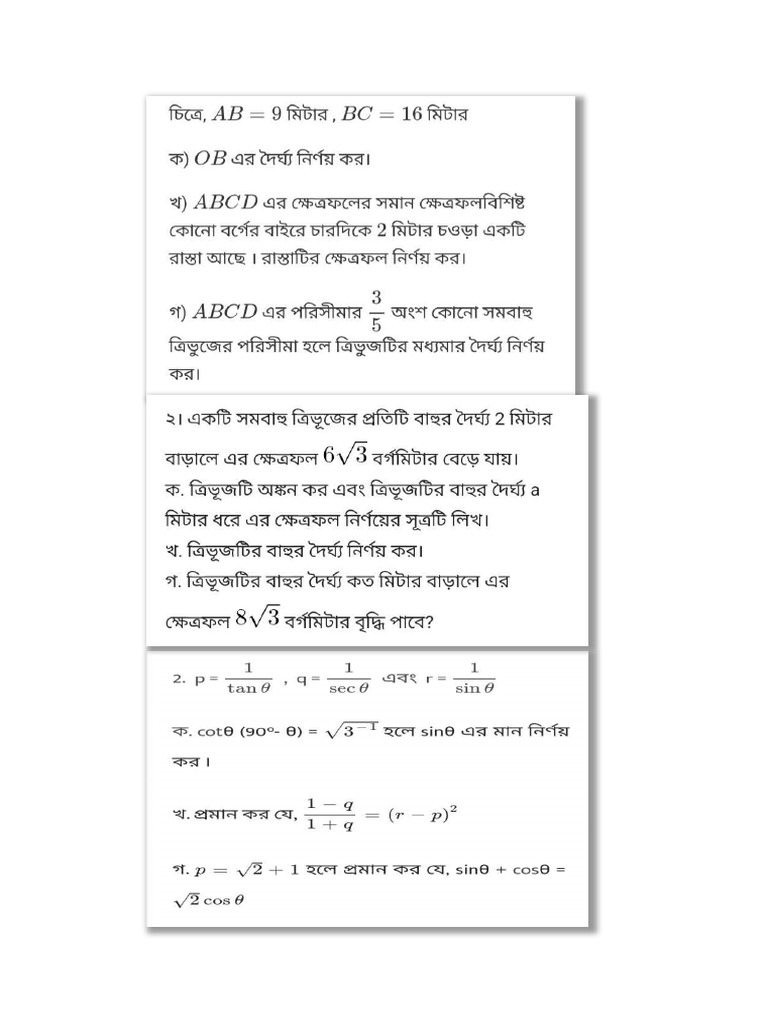 চিত্রে, AB = 9 মিটার , BC = 16 মিটার
ক) OB এর দৈর্ঘ্য নির্ণয় কর।
খ) ABCD এর ক্ষেত্রফলের সমান ক্ষেত্রফলবিশিষ্ট
কোনো বর্গের বাইরে চারদিকে 2 মিটার চওড়া একটি
রাস্তা আছে । রাস্তাটির ক্ষেত্রফল নির্ণয় কর।
গ) ABCD এর পরিসীমার 3/5 অংশ কোনো সমবাহু
ত্রিভুজের পরিসীমা হলে ত্রিভুজটির মধ্যমার দৈর্ঘ্য নির্ণয়
কর।
২। একটি সমবাহু ত্রিভূজের প্রতিটি বাহুর দৈর্ঘ্য 2 মিটার
বাড়ালে এর ক্ষেত্রফল 6√3 বর্গমিটার বেড়ে যায়।
ক. ত্রিভূজটি অঙ্কন কর এবং ত্রিভূজটির বাহুর দৈর্ঘ্য a
মিটার ধরে এর ক্ষেত্রফল নির্ণয়ের সূত্রটি লিখ।
খ. ত্রিভূজটির বাহুর দৈর্ঘ্য নির্ণয় কর।
গ. ত্রিভূজটির বাহুর দৈর্ঘ্য কত মিটার বাড়ালে এর
ক্ষেত্রফল 8√3 বর্গমিটার বৃদ্ধি পাবে?
2. p = 1/tan θ , q = 1/sec θ এবং r = 1/sin θ
ক. cotθ (90°- θ) = √3⁻¹ হলে sinθ এর মান নির্ণয়
কর ।
খ. প্রমান কর যে, (1 − q)/(1 + q) = (r − p)²
গ. p = √2 + 1 হলে প্রমান কর যে, sinθ + cosθ =
√2 cos θ